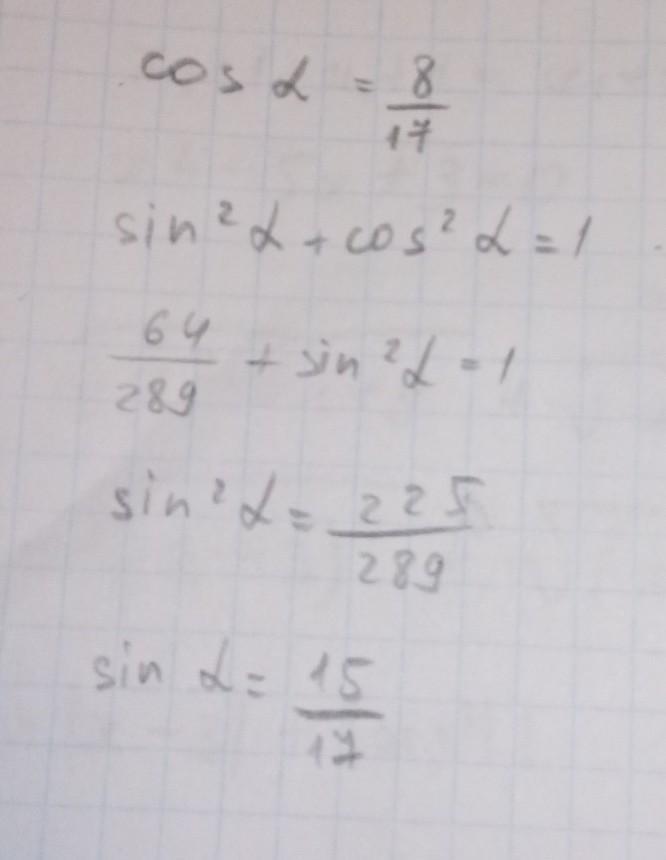 cos α = 8/17
sin²α + cos²α = 1
64/289 + sin²α = 1
sin²α = 225/289
sin α = 15/17